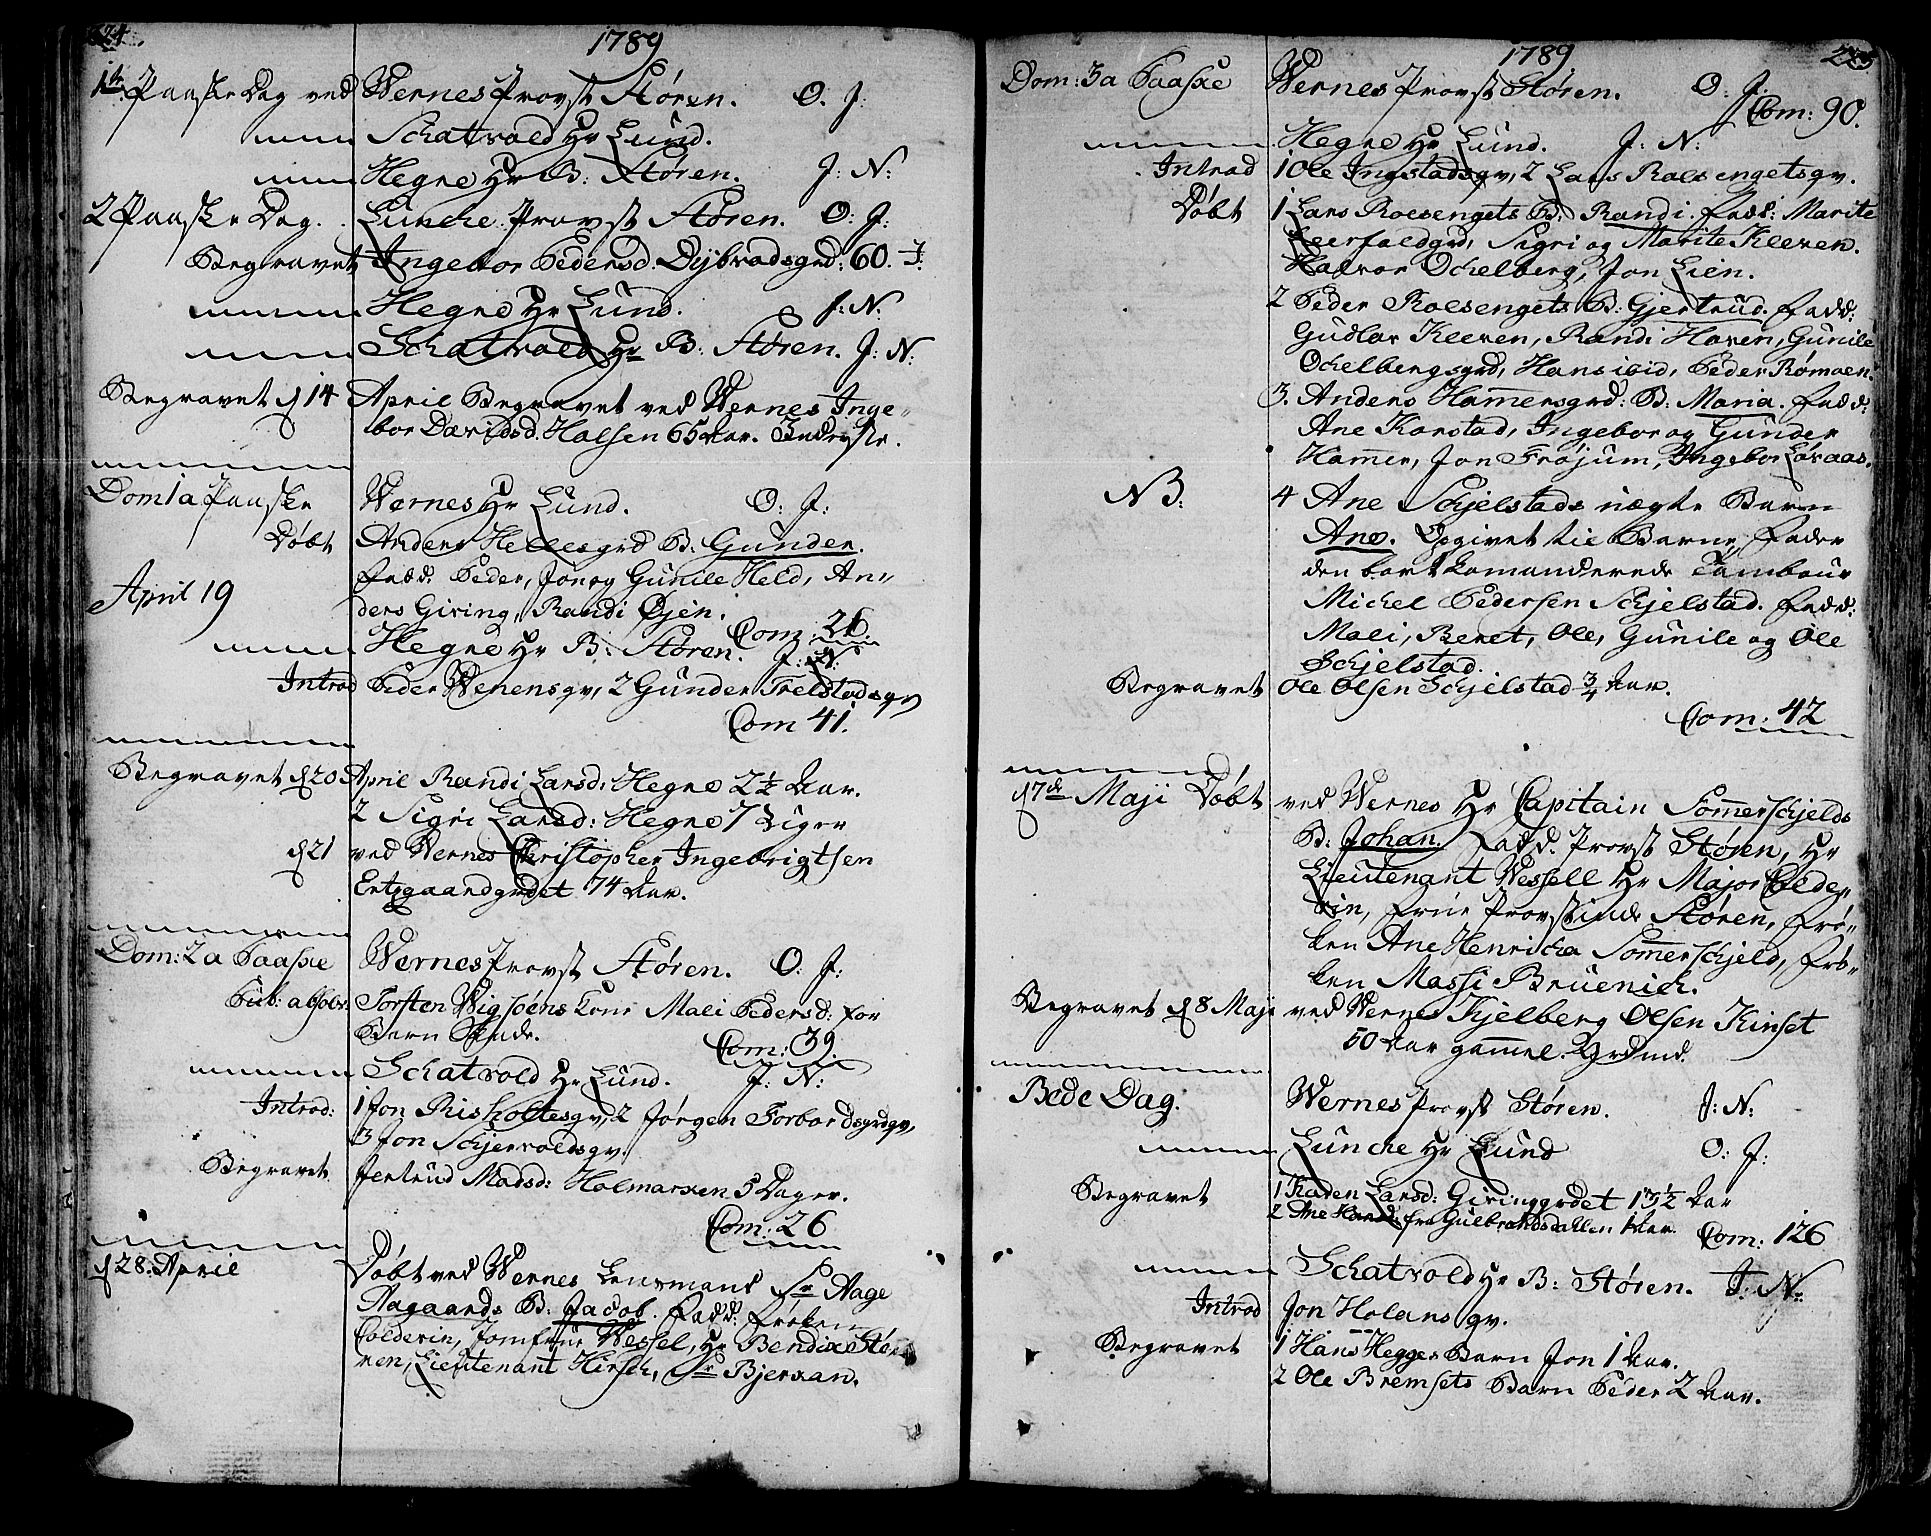 224.
1789
1te Paaske Dag ved Wernes Provst Støren. O. J:
Schatvold Hr Lund.
Hegne Hr B: Støren. J: N:
2 Paaske Dag. Lunche Provst Støren. O: J:
Begravet Ingebor Pedersd. Dybvadsgrd: 60. J.
Hegne Hr Lund. J: N:
Schatvold Hr B: Støren. J: N:
Begravet d 14 April Begravet ved Wernes Inge-
bor Davidsd. Halsen 65 Aar.
Dom 1 a Paaske Wernes Hr Lund. O: J:
Døbt Anders Hellesgrd B: Gunder.
Fadd. Peder, Jon og Gunile Held, An-
April 19 ders Giving, Randi Øjen.
Com: 26.
Hegne Hr B: Støren. J: N:
Introd Peder Wenensgv, 2 Gunder Trelstadsgv
Com 41.
Begravet d 20 April Randi Larsd: Hegne 2½ Aar.
2 Sigri Larsd: Hegne 7 Uger
d 21 ved Wernes Christopher Ingebrigtsen
Ertzgaardgrdet 74 Aar.
Dom: 2 a Paaske Wernes Provst Støren. O: J:
Pub: absolv: Torsten Wigsøens Kone Mali Pedersd: for
Barn Com: 39.
Schatvold Hr Lund. J: N:
Introd: 1 Jon Risholtesgv, 2 Jørgen Forbordsgrdgv,
3 Jon Schjervoldsgv.
Begravet Jertrud Madsd: Holmarxen 5 Dager.
Com: 26
d 28. April Døbt ved Wernes Lensmand Sr Aage
Aagaards B: Jacob. Fadd: Frøken
Colderin, Jomfrue Wessel, Hr Bendix Stø-
ren, Lieutenant Hirsch, Sr Bjerxan.
1789
225
Dom: 3 a Paaske Wernes Provst Støren. O. J.
Com: 90.
Hegne Hr Lund. J: N:
Introd 1 Ole Ingstadsgv, 2 Lars Roesengetsgv.
Døbt 1 Lars Roesengets B: Randi. Fadd: Marite
Leerfaldgrd, Sigri og Marite Kleven.
Halvor Ochelberg, Jon Lien.
2 Peder Roesengets B: Gjertrud. Fadd:
Gudlov Kleven, Randi Haven, Gunile
Ochelbergsgrd, Hans ibid, Peder Rømoen.
3. Anders Hamersgrd: B: Maria. Fadd:
Ane Korstad, Ingebor og Gunder
Hamer, Jon Frøjum, Ingebor Løvaas.
NB: 4 Ane Schjelstads uægte Barn
Ane. Opgivet til Barne Fader
den bortkomanderede Tambour
Michel Pedersen Schjelstad. Fadd:
Mali, Beret, Ole, Gunile og Ole
Schjelstad.
Begravet Ole Olsen Schjelstad ¾ Aar.
Com: 42
d 7de Maji Døbt ved Wernes Hr Capitain Somerschjelds
B: Johan. Fadd. Provst Støren, Hr
Lieutenant Wessell Hr Major Colde-
rin, Frue Provstinde Støren, Frø-
ken Ane Henricha Somerschjeld, Frø-
ken Massi Bruenich.
Begravet d 8 Maji ved Wernes Kjelberg Olsen Kinset
50 Aar gammel.
Bede Dag. Wernes Provst Støren. J: N:
Lunche Hr Lund O: J:
Begravet 1 Karen Larsd: Givinggrdet 13½ Aar
2 Ane fra Gulbrandsdallen 1 Aar. Com: 126
Schatvold Hr B: Støren. J: N:
Introd Jon Holansgv.
Begravet 1 Hans Hegges Barn Jon 1 Aar.
2 Ole Bremsets Barn Peder 2 Aar.